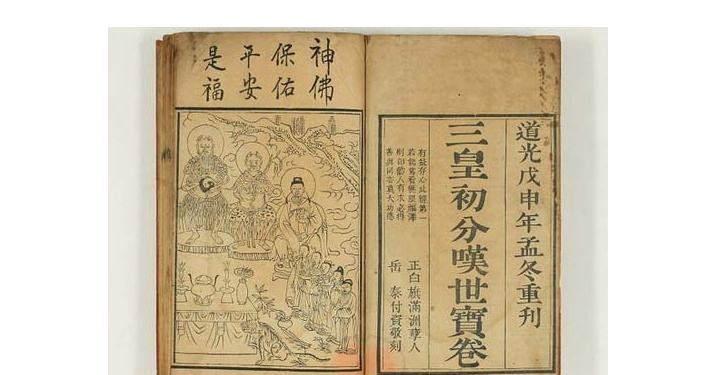 道光戊申年孟冬重刊
三皇初分嘆世寶卷
有益存心此經第一
若能常看無灾無障
則印勸人有求必得
善與同志莫大功德
正白旗滿洲孽人
岳泰付資敬刻
神佛
保佑
平安
是福